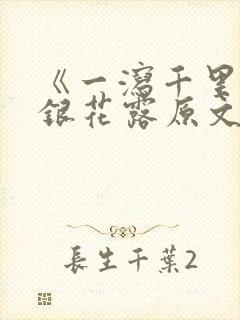 《一瀉千里
銀花露原文
長生千葉2